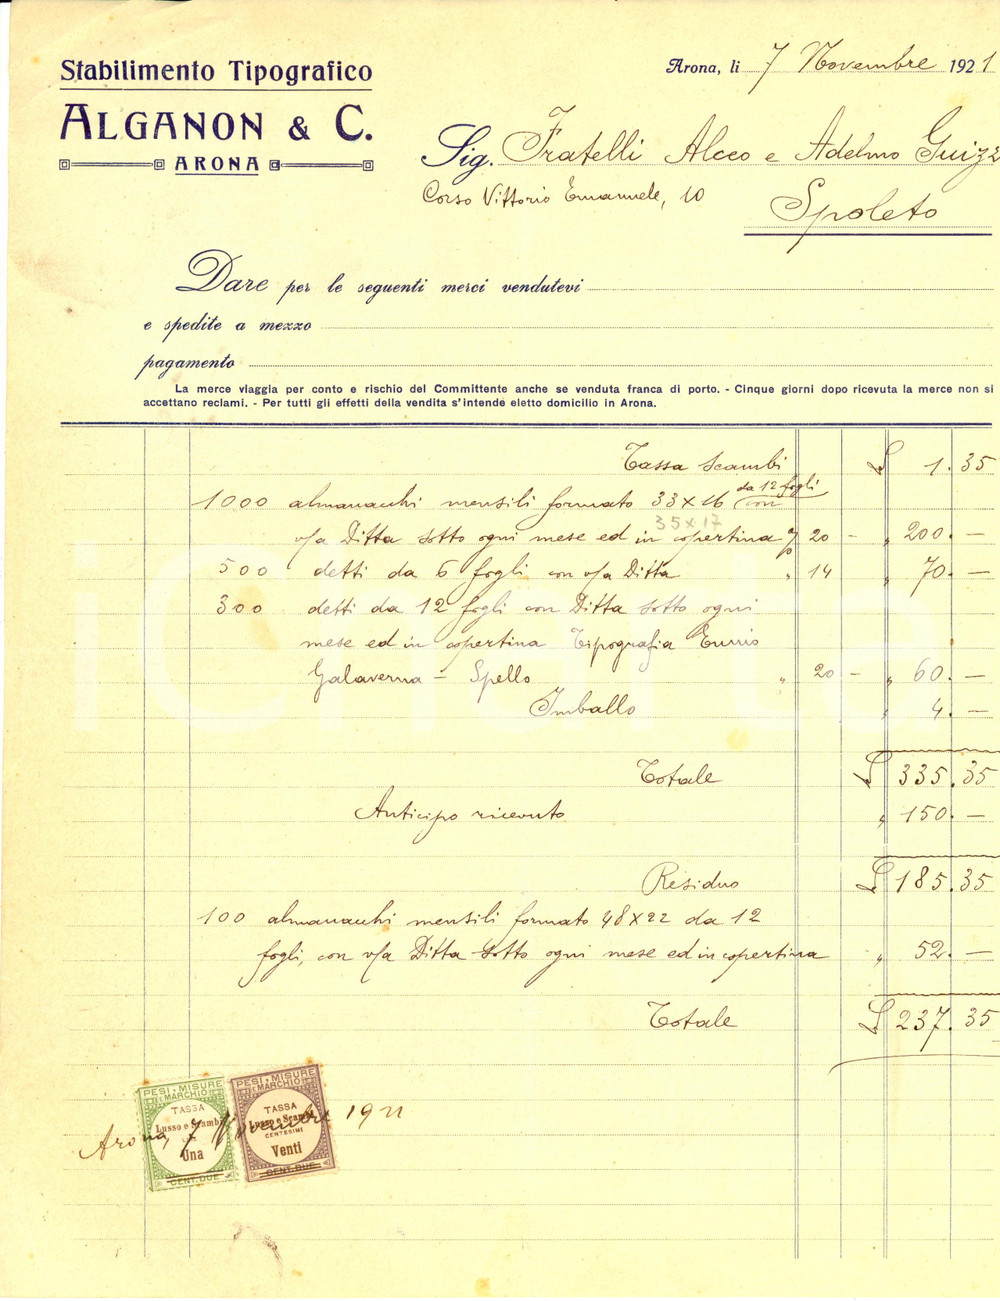 Stabilimento Tipografico
ALGANON & C.
ARONA
Arona, li 7 Novembre 1921
Sig. Fratelli Alceo e Adelmo Guizz
Corso Vittorio Emanuele, 10
Spoleto
Dare per le seguenti merci vendutevi
e spedite a mezzo
pagamento
La merce viaggia per conto e rischio del Committente anche se venduta franca di porto. - Cinque giorni dopo ricevuta la merce non si
accettano reclami. - Per tutti gli effetti della vendita s'intende eletto domicilio in Arona.
Tassa scambi £ 1.35
da 12 fogli
1000 almanacchi mensili formato 33×16 con
35×17
v/a Ditta sotto ogni mese ed in copertina % 20 - " 200.-
500 detti da 6 fogli con v/a Ditta " 14 " 70.-
300 detti da 12 fogli con Ditta sotto ogni
mese ed in copertina Tipografia Ennio
Galaverna - Spello " 20 - " 60.-
Imballo " 4.-
Totale £ 335.35
Anticipo ricevuto " 150.-
Residuo £ 185.35
100 almanacchi mensili formato 48×22 da 12
fogli, con v/a Ditta sotto ogni mese ed in copertina " 52.-
Totale £ 237.35
PESI·MISURE E MARCHIO
TASSA
Lusso e Scambi
Una
CENT. DUE
PESI·MISURE E MARCHIO
TASSA
Lusso e Scambi
CENTESIMI
Venti
CENT. DUE
Arona, 7 Novembre 1921